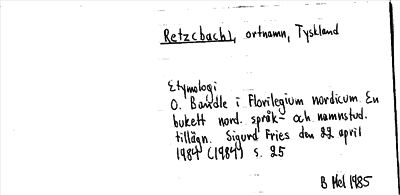 Retzcbach, ortnamn, Tyskland
Etymologi
O. Bandle i Florilegium nordicum. En
bukett nord. språk- och namnstud.
tillägn. Sigurd Fries den 22 april
1984 (1984) s. 25
B Hel 1985